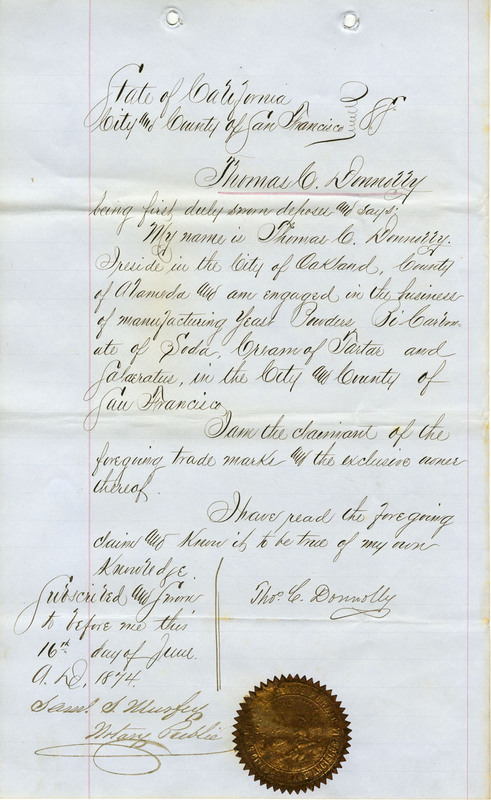 State of California
City and County of San Francisco } SS.
Thomas C. Donnolly
being first duly sworn deposes and says;
My name is Thomas C. Donnolly.
I reside in the City of Oakland, County
of Alameda and am engaged in the business
of manufacturing Yeast Powders, Bi Carbon-
ate of Soda, Cream of Tartar and
Salaeratus, in the City and County of
San Francisco
I am the claimant of the
foregoing trade marks and the exclusive owner
thereof.
I have read the foregoing
claim and know it to be true of my own
Knowledge
Subscribed and sworn
to before me this
16th day of June.
A.D. 1874.
Thos. C. Donnolly
Saml S Murfey
Notary Public